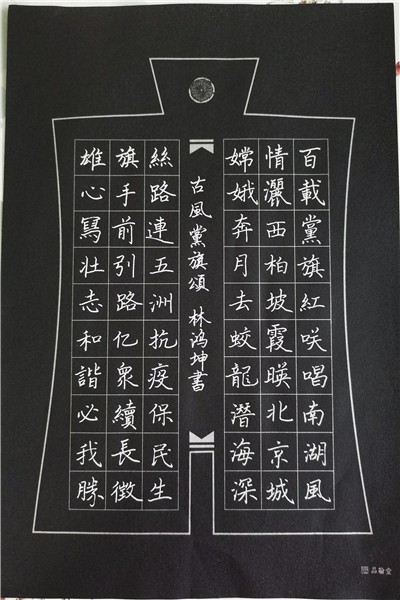 百載黨旗紅咲唱南湖風
情灑西柏坡霞暎北京城
嫦娥奔月去蛟龍潛海深
古風黨旗頌 林鸿坤書
絲路連五洲抗疫保民生
旗手前引路亿衆續長徵
雄心寫壮志和諧必我勝